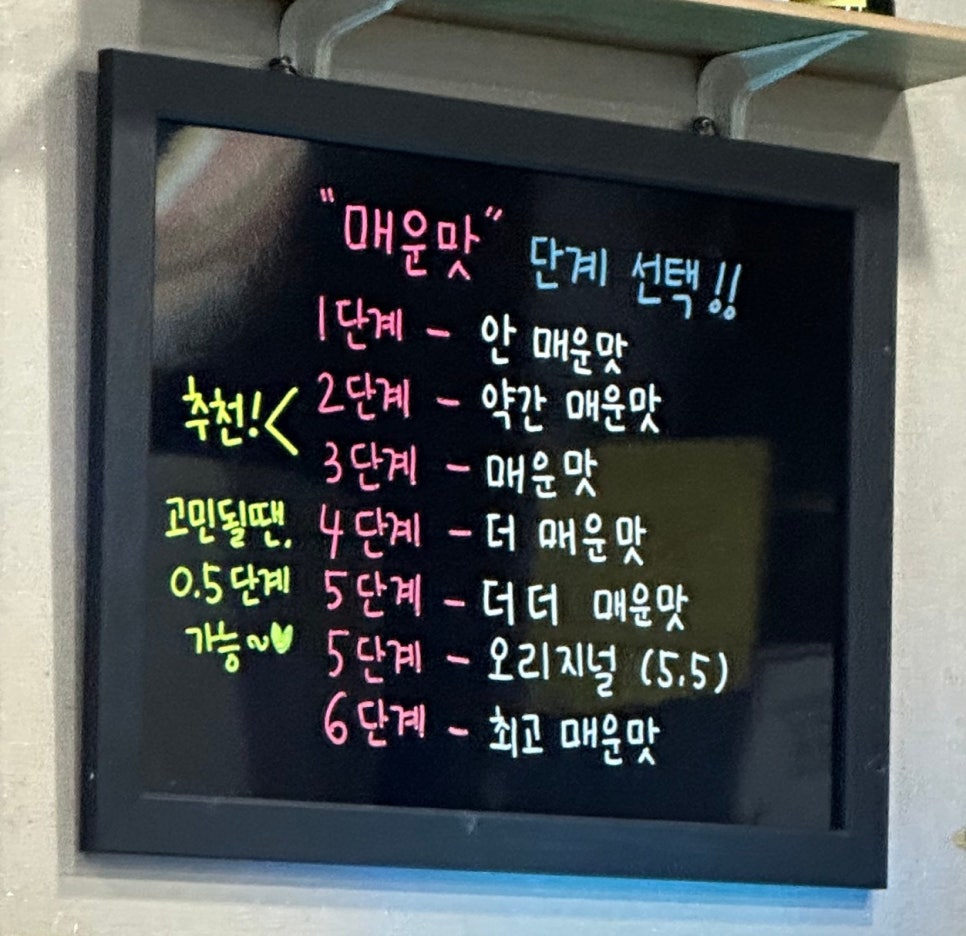 "매운맛" 단계 선택!!
1단계 - 안 매운맛
2단계 - 약간 매운맛
추천!<
3단계 - 매운맛
4단계 - 더 매운맛
5단계 - 더더 매운맛
5단계 - 오리지널 (5.5)
6단계 - 최고 매운맛
고민될땐,
0.5단계
가능~♥